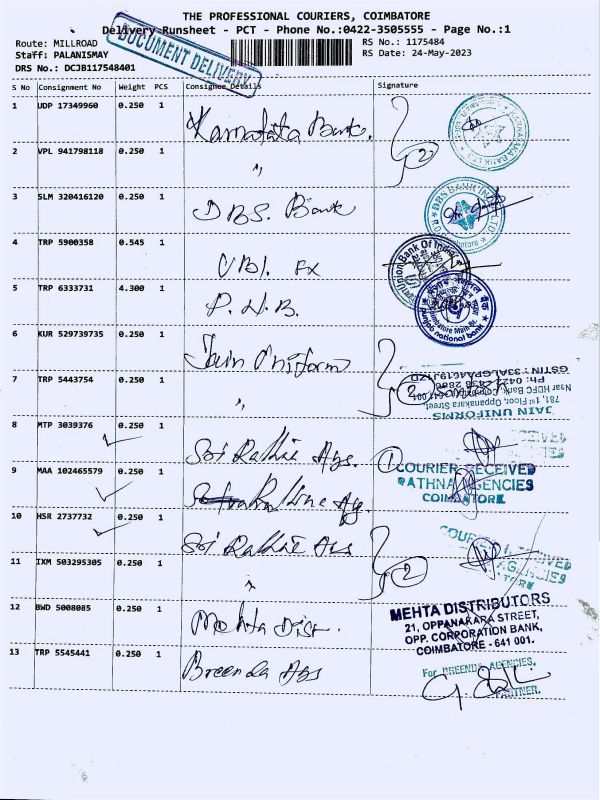 THE PROFESSIONAL COURIERS, COIMBATORE
Delivery Runsheet - PCT - Phone No.:0422-3505555 - Page No.:1
Route: MILLROAD
RS No.: 1175484
Staff: PALANISMAY
RS Date: 24-May-2023
DRS No.: DCJB117548401
DOCUMENT DELIVERY
S No Consignment No Weight PCS Consignee Details Signature
1 UDP 17349960 0.250 1 Karnataka Bank.
2 VPL 941798118 0.250 1 " 2
3 SLM 320416120 0.250 1 DBS. Bank
DBS BANK INDIA LTD
Coimbatore
4 TRP 5900358 0.545 1 UBI. Ex
Union Bank Of India
5 TRP 6333731 4.300 1 P.N.B.
Coimbatore Main Br.
punjab national bank
6 KUR 529739735 0.250 1 Jain Uniform
7 TRP 5443754 0.250 1 " 2
JAIN UNIFORMS
781, 1st Floor, Oppanakara Street,
Near HDFC Bank, Coimbatore
GSTIN : 33ALGPA4619J1ZD
8 MTP 3039376 0.250 1 Sri Rathi Ags. 1
9 MAA 102465579 0.250 1
COURIER RECEIVED
RATHNA AGENCIES
COIMBATORE
10 HSR 2737732 0.250 1 Sri Rathi Ags
11 IXM 503295305 0.250 1 " 2
COURIER RECEIVED
AGENCIES
12 BWD 5008085 0.250 1 Mehta Dist.
MEHTA DISTRIBUTORS
21, OPPANAKARA STREET,
OPP. CORPORATION BANK,
COIMBATORE - 641 001.
13 TRP 5545441 0.250 1 Breenda Ags
For BREENDA AGENCIES,
PARTNER.